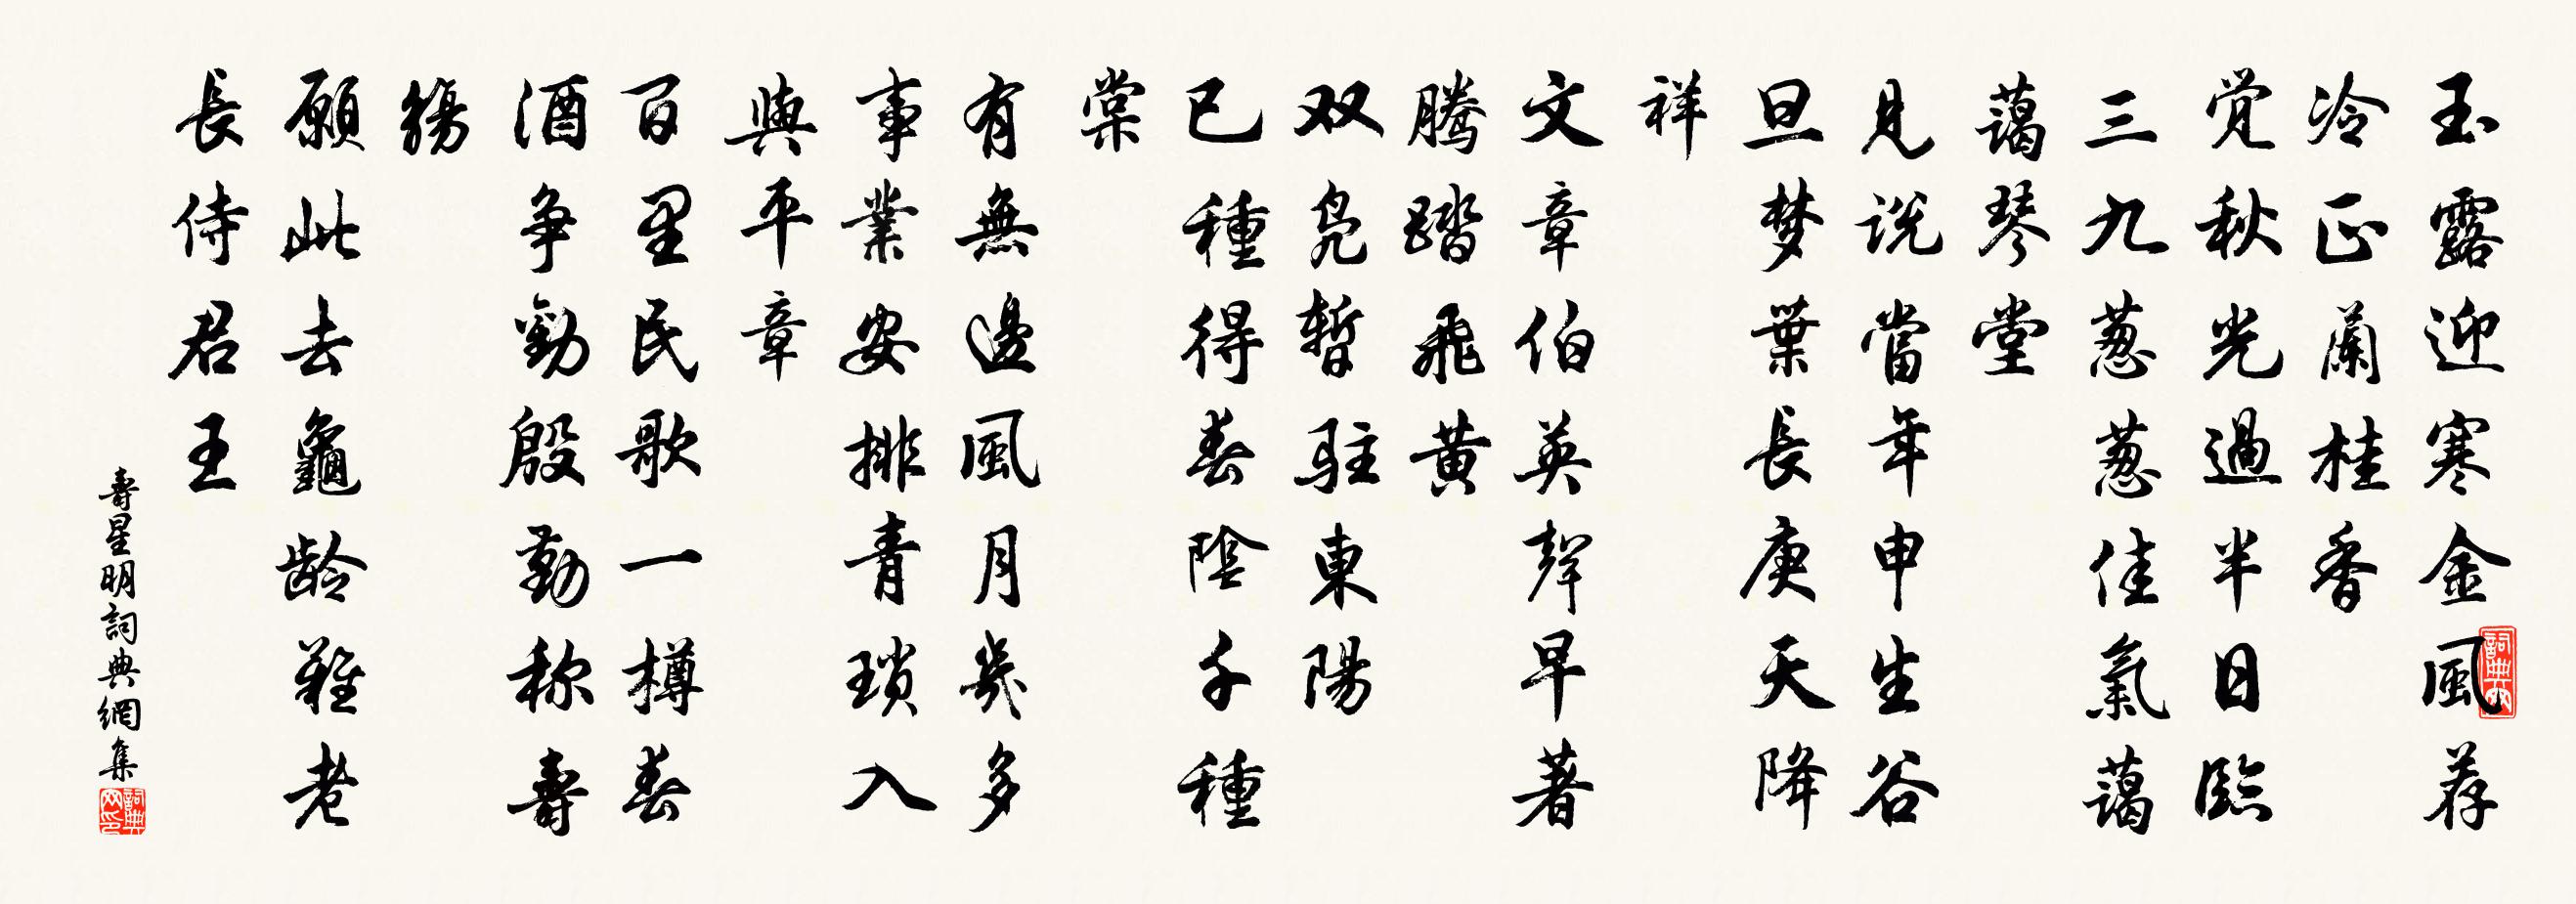 玉露迎寒金風荐
冷正蘭桂香
覚秋光過半日臨
三九葱葱佳氣藹
藹琴堂
見説當年申生谷
旦梦葉長庚天降
祥
文章伯英聲早著
騰踏飛黄
双凫暫駐東陽
已種得春陰千種
棠
有無邊風月幾多
事業安排青瑣入
與平章
百里民歌一樽春
酒争勸殷勤称壽
觴
願此去龜齡難老
長侍君王
壽星明詞典網集
詞典网
詞典网印